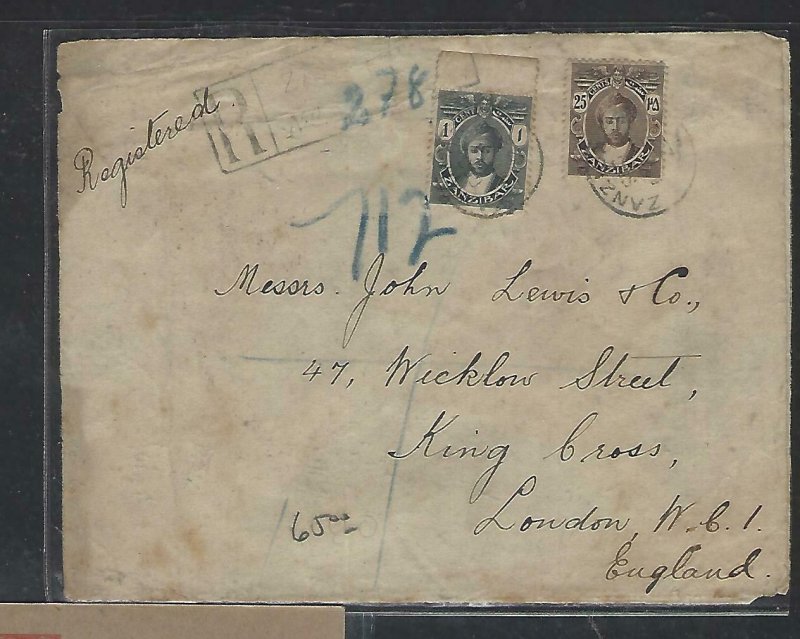 Registered.
R
278
CENT
1 1
ZANZIBAR
CENTS
25 ٢٥
ZANZIBAR
ZANZ
112
Messrs. John Lewis & Co.,
47, Wicklow Street,
King Cross,
London, W.C.1.
England.
65.00